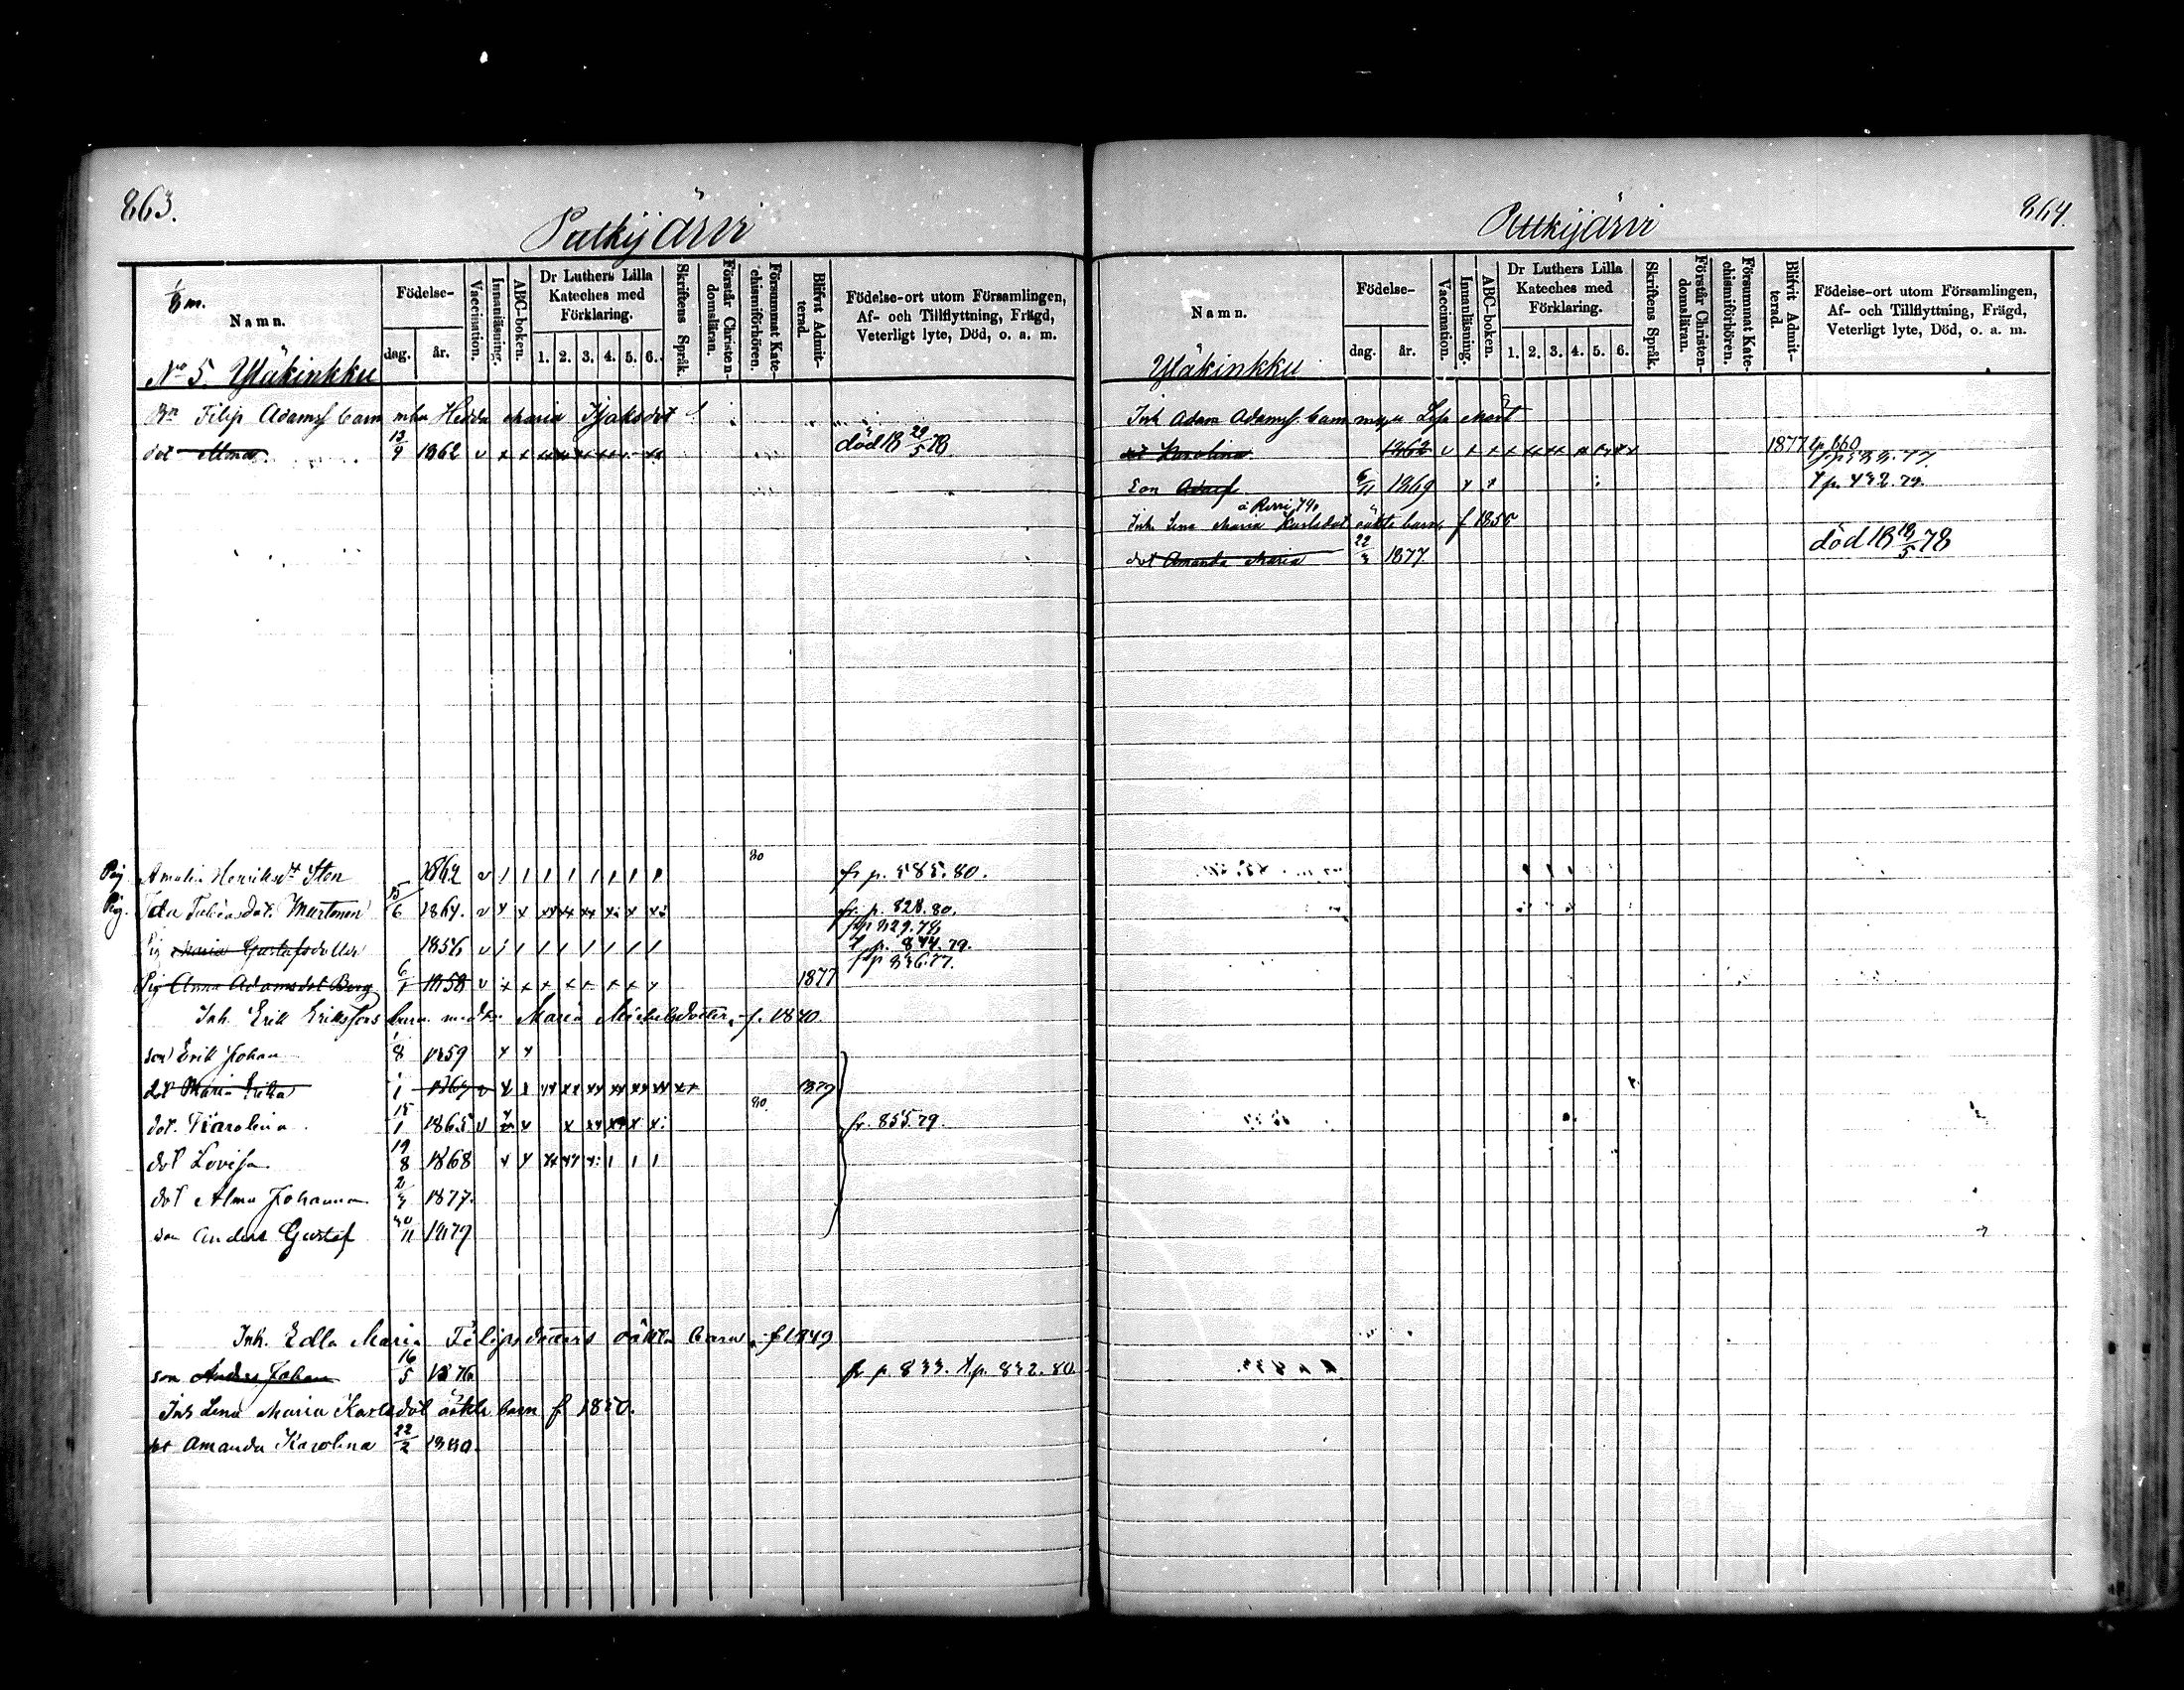 863.
Putkijärvi
1/3 m.
Namn.
Födelse-
dag.
år.
Vaccination.
Innanläsning.
ABC-boken.
Dr Luthers Lilla Kateches med Förklaring.
1. 2. 3. 4. 5. 6.
Skriftens Språk.
Förstår Christendomsläran.
Försummat Katechismiförhören.
Blifvit Admitterad.
Födelse-ort utom Församlingen, Af- och Tillflyttning, Frägd, Veterligt lyte, Död, o. a. m.
No 5. Yläkinkku
Bn Filip Adamsf barn mhu Hedda Maria Isaksdot
dot Alma 13/9 1862 v x x död 18 29/5 78
80
Pig. Amalia Henriksdt Sten 1862 v fr p. 585. 80.
Pig. Ida Juliasdot. Martonen 15/6 1864. v x x xx xx xx x: x x: fr. p. 828. 80.
Pig Maria Gustafsdotter 1856 v
Pig Anna Adamsdot Berg 6/1 1858 v x x x x x x x x 1877
Inh. Erik Eriksons barn medh. Maria Michelsdotter, f. 1840.
son Erik Johan 8 1859 x x
dot Maria 1 v x x xx xx xx xx xx xx xx 1879
dot. Karolina 15/1 1865 v 80. fr. 855.79.
dot Lovisa 19/8 1868 x x
dot Alma Johanna 1877.
son Anders Gustaf 30/11 1879
Inh. Edla Maria Filipsdotters oäkta barn, f 1849
son Anders Johan 16/5 1876 fr p 833. t.p. 832. 80.
Inh Lena Maria Karlsdot oäkta barn f 1850.
dot Amanda Karolina 22/2 1880.
864.
Putkijärvi
Namn.
Födelse-
dag.
år.
Vaccination.
Innanläsning.
ABC-boken.
Dr Luthers Lilla Kateches med Förklaring.
1. 2. 3. 4. 5. 6.
Skriftens Språk.
Förstår Christendomsläran.
Försummat Katechismiförhören.
Blifvit Admitterad.
Födelse-ort utom Församlingen, Af- och Tillflyttning, Frägd, Veterligt lyte, Död, o. a. m.
Yläkinkku
Inh Adam Adamsf. barn
dot Karolina 1862 v x x x 1877
Son 6/11 1869 x x
Inh. Lena Maria Karlsdot oäkta barn, f 1855
död 18 18/5 78
dot Amanda Maria 22/3 1877.